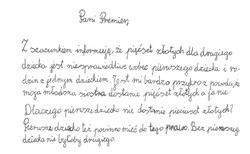 Pani Premier,
Z szacunkiem informuję, że pięćset złotych dla drugiego
dziecka jest niesprawiedliwe wobec pierwszego dziecka i ro-
dzin z jednym dzieckiem. Jest mi bardzo przykro z powodu, że
moja młodsza siostra dostanie pięćset złotych a ja nie.
Dlaczego pierwsze dziecko nie dostanie pięciuset złotych?
Pierwsze dziecko też powinno mieć do tego prawo. Bez pierwszego
dziecka nie byłoby drugiego.